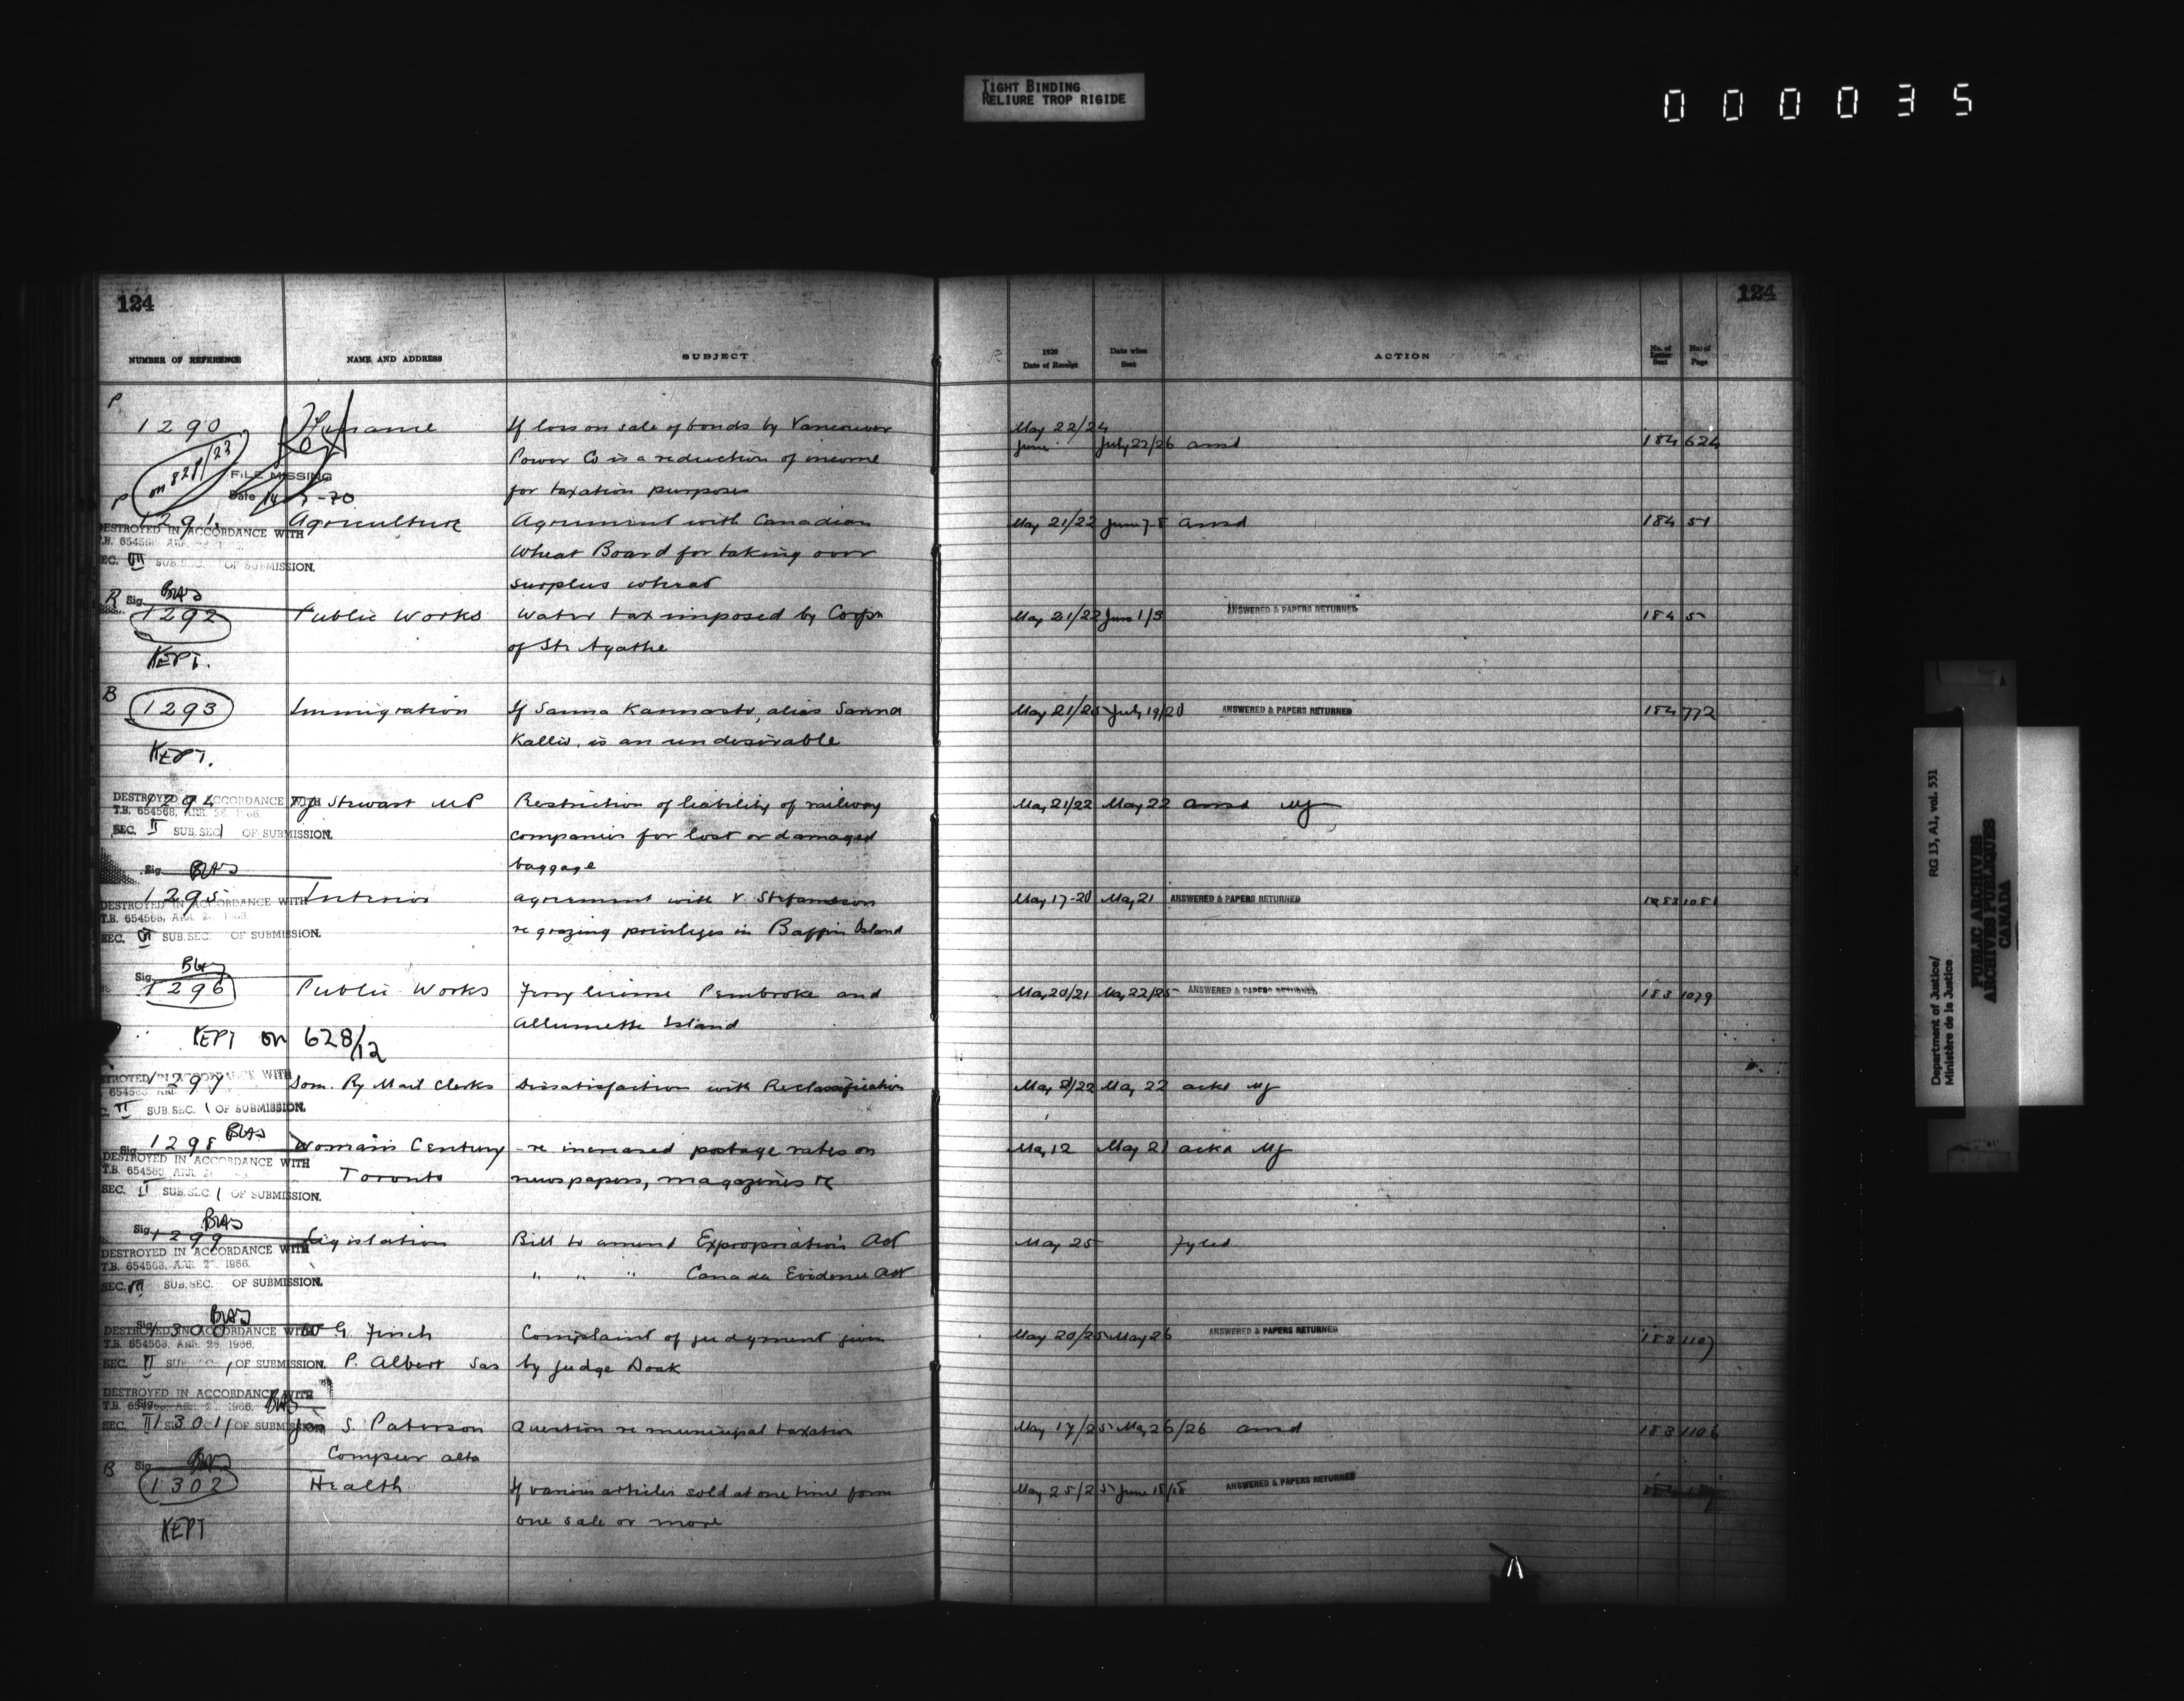 TIGHT BINDING
RELIURE TROP RIGIDE
000035
124
124
NUMBER OF REFERENCE NAME AND ADDRESS SUBJECT
1920 Date of Receipt Date when Sent ACTION No. of Letter Sent No. of Page
P
1290 Finance If loss on sale of bonds by Vancouver May 22/24
June July 22/26 ansd 184 624
Power Co is a reduction of income
on 821/23 FILE MISSING
P Date -70 for taxation purposes
1291 Agriculture Agreement with Canadian May 21/22 June 7-8 ansd 184 51
DESTROYED IN ACCORDANCE WITH
T.B. 654568
Wheat Board for taking over
SEC. VII SUB.SEC. OF SUBMISSION.
surplus wheat
R Sig.
1292 Public Works Water tax imposed by Corpn May 21/22 June 1/3 ANSWERED & PAPERS RETURNED 184 5
of Ste Agathe
KEPT.
B
1293 Immigration If Sanna Kannasto, alias Sanna May 21/25 July 19/20 ANSWERED & PAPERS RETURNED 184 772
Kallio, is an undesirable
KEPT.
1294 J Stewart MP Restriction of liability of railway May 21/22 May 22 ansd MJ
DESTROYED IN ACCORDANCE WITH
T.B. 654568, APR. 26, 1966.
SEC. II SUB.SEC. 1 OF SUBMISSION.
companies for lost or damaged
baggage
Sig.
1295 Interior agreement with V. Stefansson May 17-20 May 21 ANSWERED & PAPERS RETURNED 183 1081
DESTROYED IN ACCORDANCE WITH
T.B. 654568,
SEC. VI SUB.SEC. OF SUBMISSION.
re grazing privileges in Baffin Island
Sig.
1296 Public Works Ferry license Pembroke and May 20/21 May 22/25 ANSWERED & PAPERS RETURNED 183 1079
Allumette Island
KEPT on 628/12
1297 Dom. Ry Mail Clerks Dissatisfaction with Reclassification May 21/22 May 22 ackd MJ
DESTROYED IN ACCORDANCE WITH
654568
II SUB.SEC. 1 OF SUBMISSION.
Sig.
1298 Woman's Century re increased postage rates on May 12 May 21 ackd MJ
DESTROYED IN ACCORDANCE WITH
T.B. 654568
Toronto newspapers, magazines &c
SEC. II SUB.SEC. 1 OF SUBMISSION.
Sig.
1299 Legislation Bill to amend Expropriation Act May 25 fyled
DESTROYED IN ACCORDANCE WITH
T.B. 654568, 1966.
" " " Canada Evidence Act
SEC. VII SUB.SEC. OF SUBMISSION.
Sig.
1300 W G. Finch Complaint of judgment given May 20/25 May 26 ANSWERED & PAPERS RETURNED 183 1107
DESTROYED IN ACCORDANCE WITH
T.B. 654568, APR. 26, 1966.
SEC. II SUB.SEC. 1 OF SUBMISSION.
P. Albert Sas by Judge Doak
DESTROYED IN ACCORDANCE WITH
T.B. 654568, 1966.
SEC. II OF SUBMISSION
1301 Jas S. Paterson Question re municipal taxation May 17/25 May 26/26 ansd 183 1106
Compeer alta
B Sig.
1302 Health If various articles sold at one time form May 25/25 June 18/18 ANSWERED & PAPERS RETURNED
one sale or more
KEPT
Department of Justice/
Ministère de la Justice
RG 13, A1, vol. 531
PUBLIC ARCHIVES
ARCHIVES PUBLIQUES
CANADA